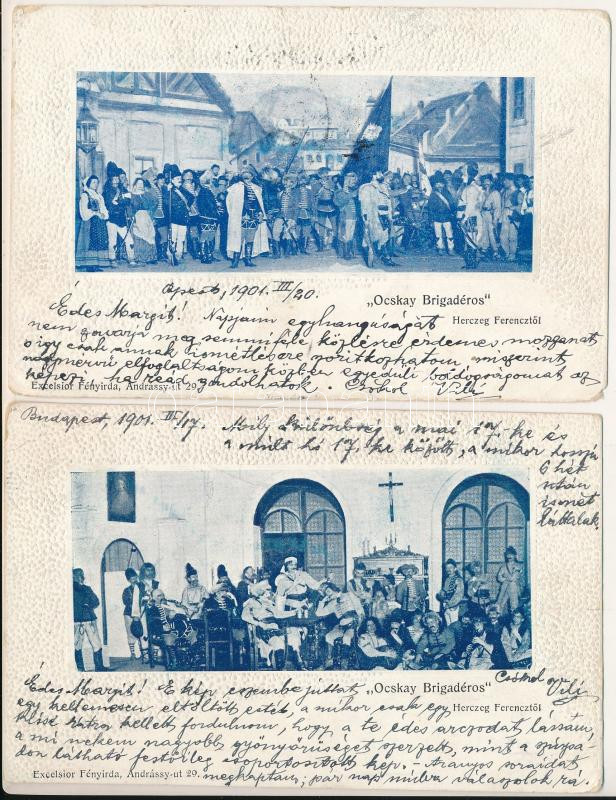 Apest, 1901. III/20.
„Ocskay Brigadéros"
Herczeg Ferencztől
Édes Margit! Napjaim egyhangúságát
nem zavarja meg semmiféle közlésre érdemes mozzanat
s így csak annak ismétlésére szorítkozhatom, miszerint
nagymérvű elfoglaltságom közben egyedüli boldogságomat az
képezi, ha reád gondolhatok. Csókol Vili
Excelsior Fényirda, Andrássy-ut 29.
Budapest, 1901. III/17. Mily különbség a mai 17.-ke és
a múlt hó 17.-ke között, a mikor hosszú
6 hét
után
ismét
láttalak.
Csókol Vili
Édes Margit! E kép eszembe juttat
„Ocskay Brigadéros"
Herczeg Ferencztől
egy kellemesen eltöltött estét, a mikor csak egy
kissé hátra kellett fordulnom, hogy a te édes arczodat lássam,
a mi nekem nagyobb gyönyörűséget szerzett, mint a színpa-
don látható festőileg csoportosított kép. - Aranyos soraidat
megkaptam; pár nap múlva válaszolok rá.
Excelsior Fényirda, Andrássy-ut 29.